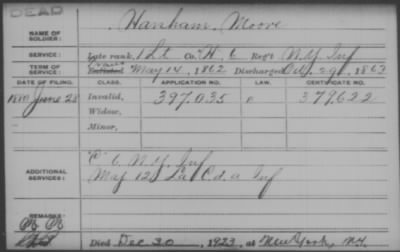 DEAD
NAME OF SOLDIER: Hanham, Moore
SERVICE: Late rank, 1 Lt Co. H, 6 Reg't N.Y. Inf
TERM OF SERVICE: Enlisted May 14, 1862 Discharged Oct. 29, 1863
DATE OF FILING. CLASS. APPLICATION NO. LAW. CERTIFICATE NO.
1880 June 28 Invalid, 397.035 379.622
Widow,
Minor,
ADDITIONAL SERVICES: C 6 N.Y. Inf
Maj 12 La C.d.A Inf
REMARKS:
Died Dec 30, 1923, at New York, NY